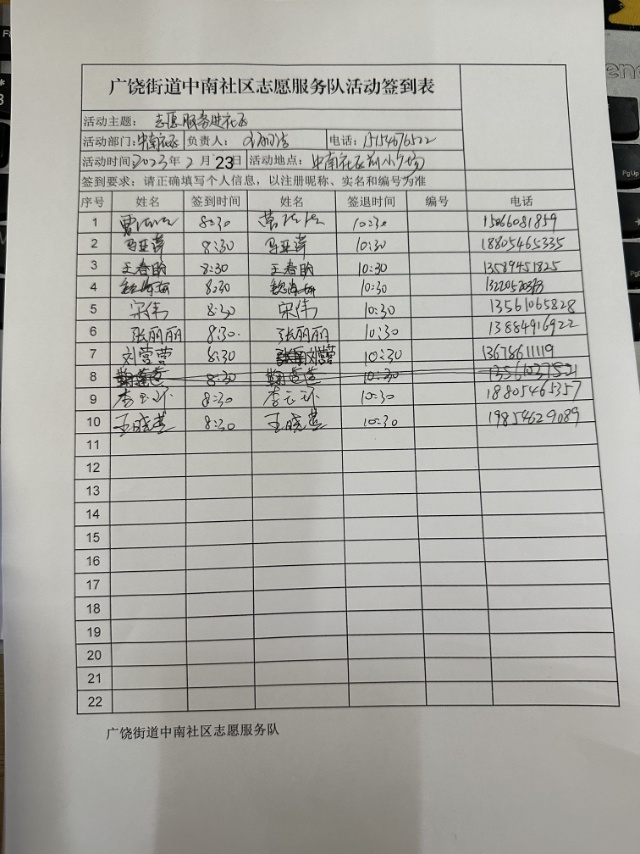 广饶街道中南社区志愿服务队活动签到表
活动主题: 志愿服务进社区
活动部门: 中南社区 负责人: 电话: 15154676522
活动时间 2023年 2 月 23日 活动地点: 中南社区前小广场
签到要求: 请正确填写个人信息, 以注册昵称、实名和编号为准
序号 姓名 签到时间 姓名 签退时间 编号 电话
1 8:30 10:30 15066081859
2 马亚萍 8:30 马亚萍 10:30 18805465335
3 王春明 8:30 王春明 10:30 13589451825
4 8:30 10:30
5 宋伟 8:30 宋伟 10:30 13561065828
6 张丽丽 8:30 张丽丽 10:30 13884916922
7 刘莹莹 8:30 刘莹莹 10:30 13678611119
8 8:30 10:30
9 李玉环 8:30 李玉环 10:30 18805465357
10 王晓燕 8:30 王晓燕 10:30 19854629089
11
12
13
14
15
16
17
18
19
20
21
22
广饶街道中南社区志愿服务队